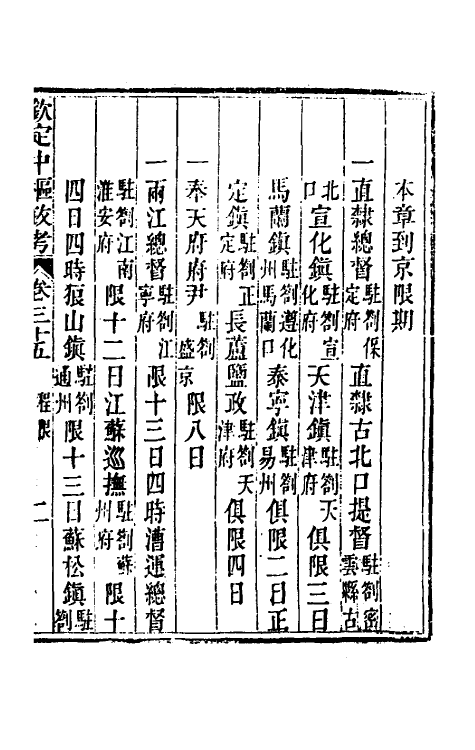 本章到京限期
一直隸總督駐劄保定府直隸古北口提督駐劄密雲縣古
北口宣化鎮駐劄宣化府天津鎮駐劄天津府俱限三日
馬蘭鎮駐劄遵化州馬蘭口泰寧鎮駐劄易州俱限二日正
定鎮駐劄正定府長蘆鹽政駐劄天津府俱限四日
一奉天府府尹駐劄盛京限八日
一兩江總督駐劄江寧府限十三日四時漕運總督
駐劄江南淮安府限十二日江蘇巡撫駐劄蘇州府限十
四日四時狼山鎮駐劄通州限十三日蘇松鎮駐劄
欽定中樞政考 卷三十五 程限 二